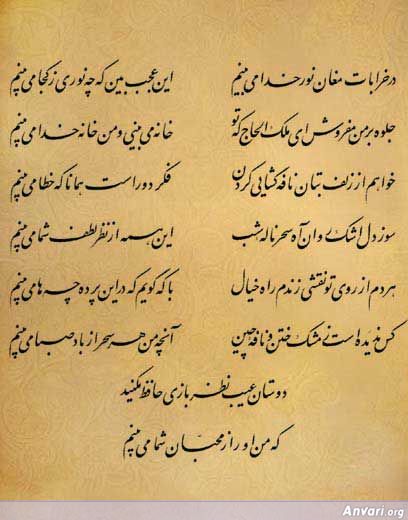 در خرابات مغان نور خدا می بینم این عجب بین که چه نوری ز کجا می بینم
جلوه بر من مفروش ای ملک الحاج که تو خانه می بینی و من خانه خدا می بینم
خواهم از زلف بتان نافه گشایی کردن فکر دور است همانا که خطا می بینم
سوز دل اشک روان آه سحر ناله شب این همه از نظر لطف شما می بینم
هر دم از روی تو نقشی زندم راه خیال با که گویم که در این پرده چه ها می بینم
کس ندیده است ز مشک ختن و نافه چین آنچه من هر سحر از باد صبا می بینم
دوستان عیب نظر بازی حافظ مکنید
که من او را ز محبان شما می بینم
Anvari.org